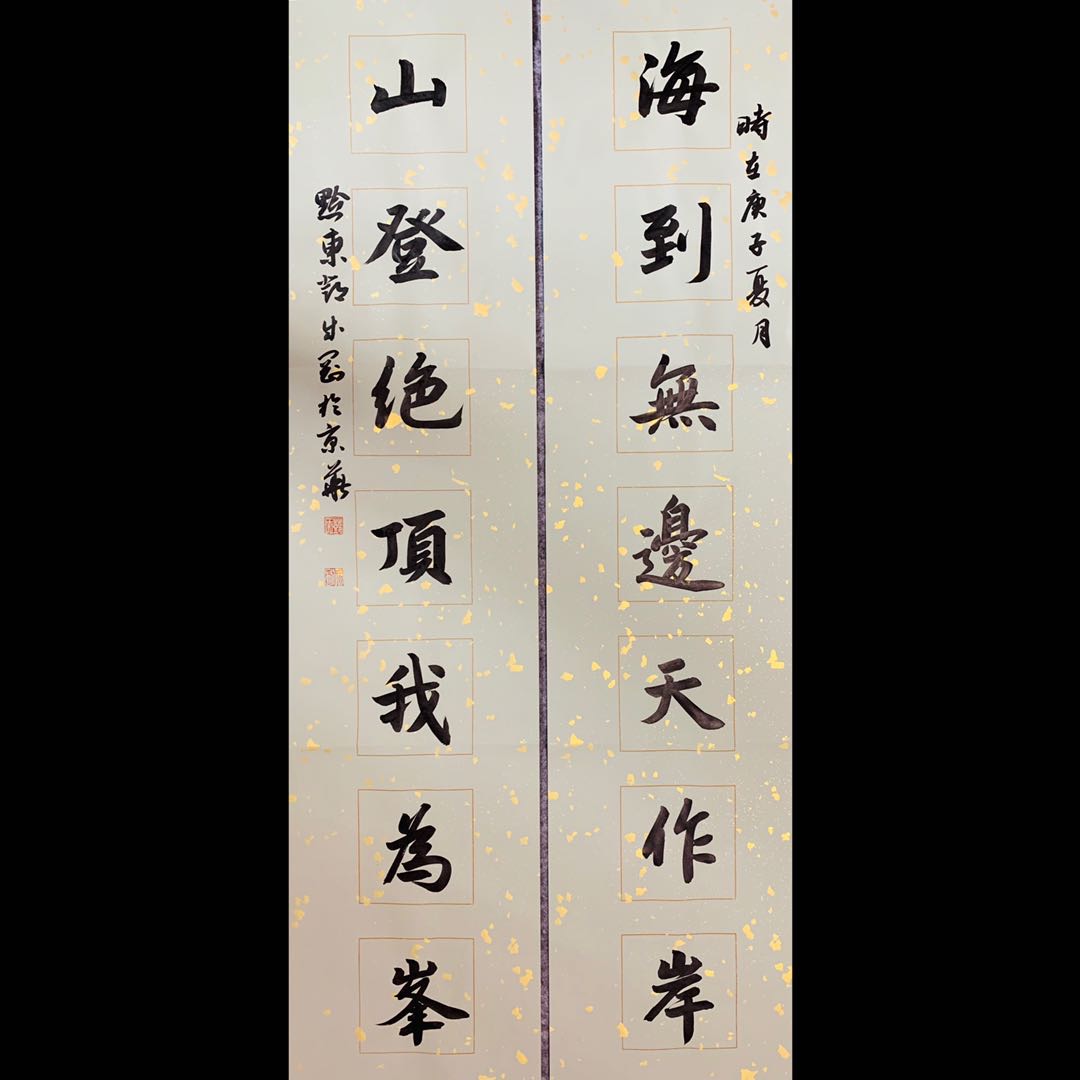 時在庚子夏月
海到無邊天作岸
山登絶頂我為峯
黔東於京華